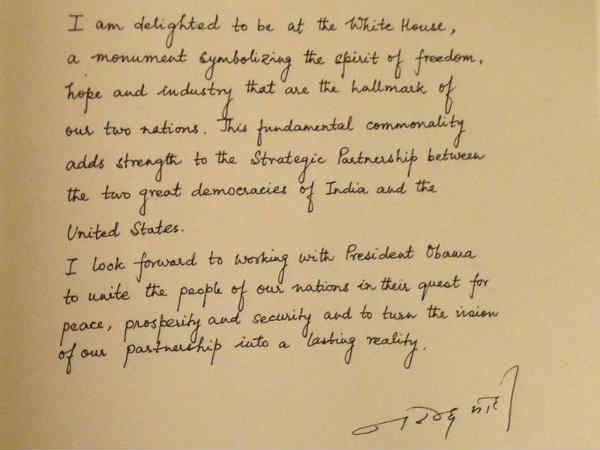 I am delighted to be at the White House,
a monument symbolizing the spirit of freedom,
hope and industry that are the hallmark of
our two nations. This fundamental commonality
adds strength to the Strategic Partnership between
the two great democracies of India and the
United States.
I look forward to working with President Obama
to unite the people of our nations in their quest for
peace, prosperity and security and to turn the vision
of our partnership into a lasting reality.